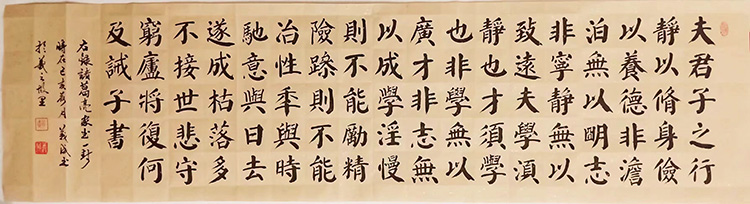 夫君子之行
靜以脩身儉
以養德非澹
泊無以明志
非寧靜無以
致遠夫學湏
靜也才須學
也非學無以
廣才非志無
以成學淫慢
則不能勵精
險躁則不能
冶性秊與時
馳意與日去
遂成枯落多
不接世悲守
窮廬將復何
及誡子書
右錄諸葛亮家書一
時在己亥月書
於